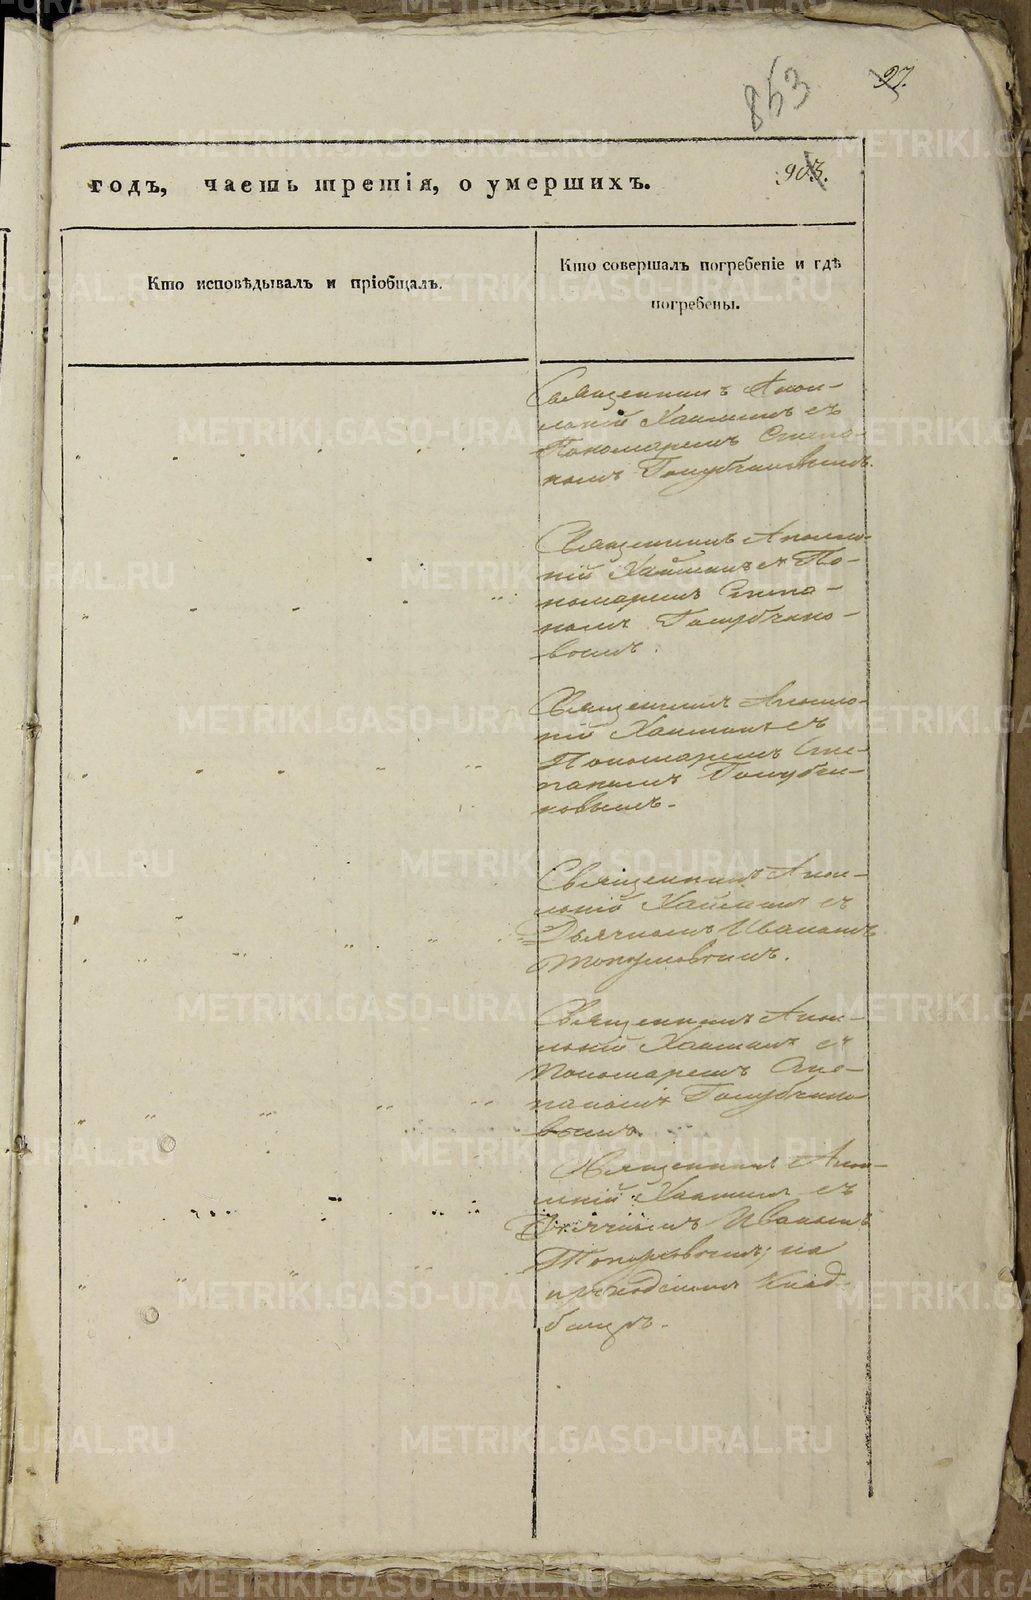 853
97.
903.
годъ, часть третія, о умершихъ.
Кто исповѣдывалъ и пріобщалъ.
Кто совершалъ погребеніе и гдѣ
погребены.
Священникъ Апол-
лоній Хаминъ съ
Пономаремъ Степа-
номъ Голубчиковымъ.
Священникъ Аполло-
ній съ По-
номаремъ Степа-
номъ Голубчико-
вымъ.
Священникъ Аполло-
ній Хаминъ съ
Пономаремъ Сте-
паномъ Голубчи-
ковымъ.
Священникъ Апол-
лоній съ
Дьячкомъ Иваномъ
Топорковымъ.
Священникъ Апол-
лоній Хаминъ съ
Пономаремъ Сте-
паномъ Голубчико
вымъ.
Священникъ Апол-
лоній Хаминъ съ
Дьячкомъ Иваномъ
Топорковымъ; на
приходскомъ Клад-
бищѣ.
METRIKI.GASO-URAL.RU